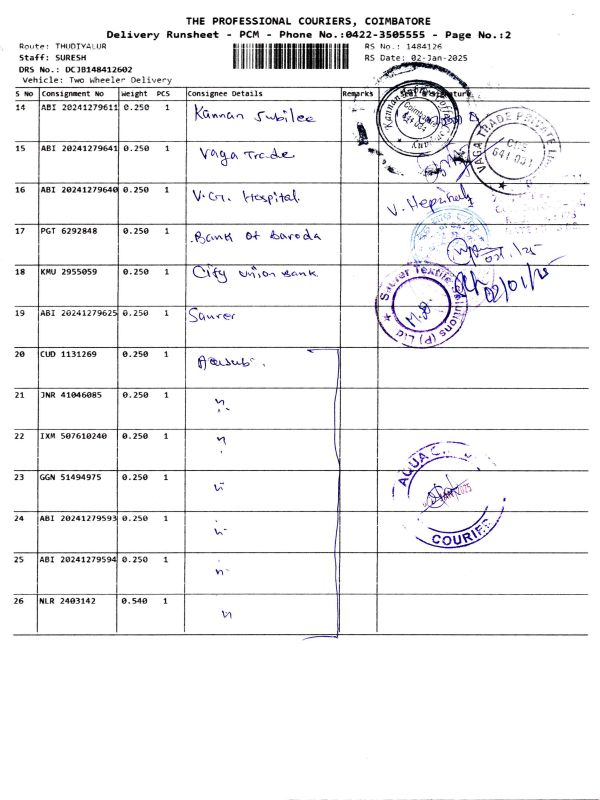 THE PROFESSIONAL COURIERS, COIMBATORE
Delivery Runsheet - PCM - Phone No.:0422-3505555 - Page No.:2
Route: THUDIYALUR RS No.: 1484126
Staff: SURESH RS Date: 02-Jan-2025
DRS No.: DCJB148412602
Vehicle: Two Wheeler Delivery
S No Consignment No Weight PCS Consignee Details Remarks
14 ABI 20241279611 0.250 1 Kannan Jubilee
15 ABI 20241279641 0.250 1 Vaga Trade
VAGA TRADE PRIVATE
CBE
641 031
16 ABI 20241279640 0.250 1 V.G. Hospital
17 PGT 6292848 0.250 1 Bank Of Baroda
18 KMU 2955059 0.250 1 City Union Bank
02/01/25
19 ABI 20241279625 0.250 1 Saurer
Saurer Textile Solutions (P) Ltd
20 CUD 1131269 0.250 1
21 JNR 41046085 0.250 1 "
22 IXM 507610240 0.250 1 "
23 GGN 51494975 0.250 1 "
24 ABI 20241279593 0.250 1 "
25 ABI 20241279594 0.250 1 "
26 NLR 2403142 0.540 1 "
COURIER